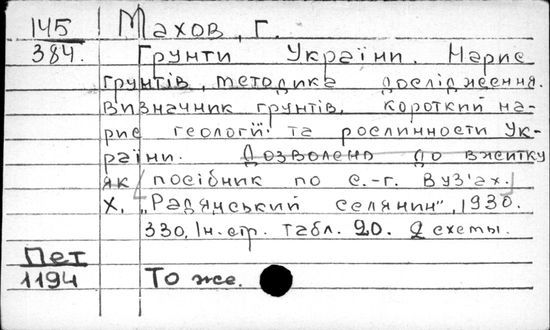 145 Махов, Г.
384. Грунти України. Нарис
грунтів, методика дослідження.
Визначник грунтів, короткий на-
рис геології та рослинности Ук-
раїни. Дозволено до вжитку
як [посібник по с.-г. Вуз'ах.]
Х., „Радянський селянин", 1930.
330, Ін. стр. табл. 20. 2 схемы.
Пет
1194 То же.